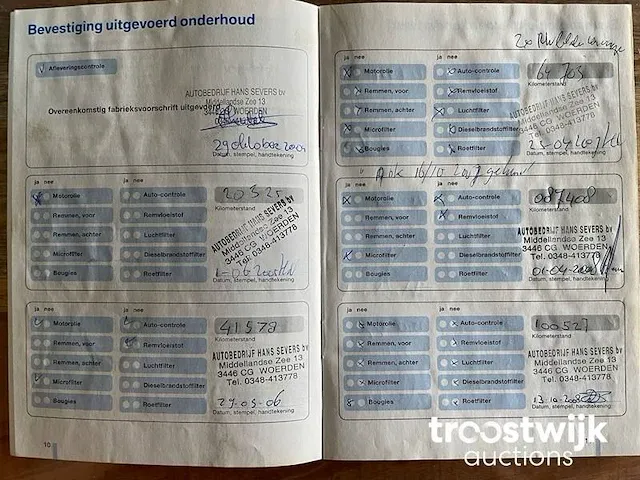 Bevestiging uitgevoerd onderhoud
Afleveringscontrole
Overeenkomstig fabrieksvoorschrift uitgevoerd
AUTOBEDRIJF HANS SEVERS bv
Middellandse Zee 13
3446 CG WOERDEN
29 oktober
Datum, stempel, handtekening
ja nee
Motorolie
Auto-controle
Remmen, voor
Remvloeistof
Remmen, achter
Luchtfilter
Microfilter
Dieselbrandstoffilter
Bougies
Roetfilter
20525
Kilometerstand
AUTOBEDRIJF HANS SEVERS bv
Middellandse Zee 13
3446 CG WOERDEN
Tel. 0348-413778
Datum, stempel, handtekening
ja nee
Motorolie
Auto-controle
Remmen, voor
Remvloeistof
Remmen, achter
Luchtfilter
Microfilter
Dieselbrandstoffilter
Bougies
Roetfilter
41578
Kilometerstand
AUTOBEDRIJF HANS SEVERS bv
Middellandse Zee 13
3446 CG WOERDEN
Tel. 0348-413778
29-05-06
Datum, stempel, handtekening
10
ja nee
Motorolie
Auto-controle
Remmen, voor
Remvloeistof
Remmen, achter
Luchtfilter
Microfilter
Dieselbrandstoffilter
Bougies
Roetfilter
64703
Kilometerstand
AUTOBEDRIJF HANS SEVERS bv
Middellandse Zee 13
3446 CG WOERDEN
Tel. 0348-413778
Datum, stempel, handtekening
16/10 2007
ja nee
Motorolie
Auto-controle
Remmen, voor
Remvloeistof
Remmen, achter
Luchtfilter
Microfilter
Dieselbrandstoffilter
Bougies
Roetfilter
087408
Kilometerstand
AUTOBEDRIJF HANS SEVERS bv
Middellandse Zee 13
3446 CG WOERDEN
Tel. 0348-413778
01-04-2008
Datum, stempel, handtekening
ja nee
Motorolie
Auto-controle
Remmen, voor
Remvloeistof
Remmen, achter
Luchtfilter
Microfilter
Dieselbrandstoffilter
Bougies
Roetfilter
100527
Kilometerstand
AUTOBEDRIJF HANS SEVERS bv
Middellandse Zee 13
3446 CG WOERDEN
Tel. 0348-413778
13-10-2008
Datum, stempel, handtekening
troostwijk
auctions